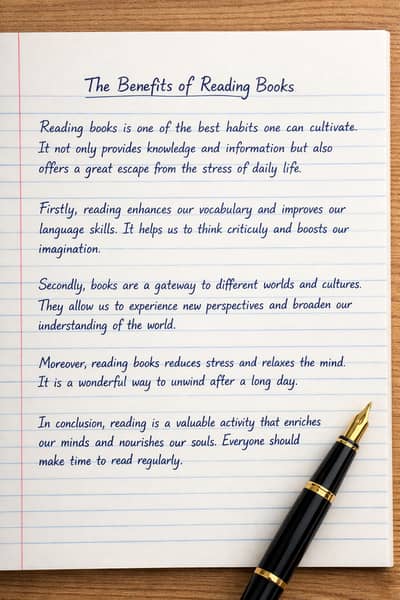 The Benefits of Reading Books
Reading books is one of the best habits one can cultivate.
It not only provides knowledge and information but also
offers a great escape from the stress of daily life.
Firstly, reading enhances our vocabulary and improves our
language skills. It helps us to think criticuly and boosts our
imagination.
Secondly, books are a gateway to different worlds and cultures.
They allow us to experience new perspectives and broaden our
understanding of the world.
Moreover, reading books reduces stress and relaxes the mind.
It is a wonderful way to unwind after a long day.
In conclusion, reading is a valuable activity that enriches
our minds and nourishes our souls. Everyone should
make time to read regularly.